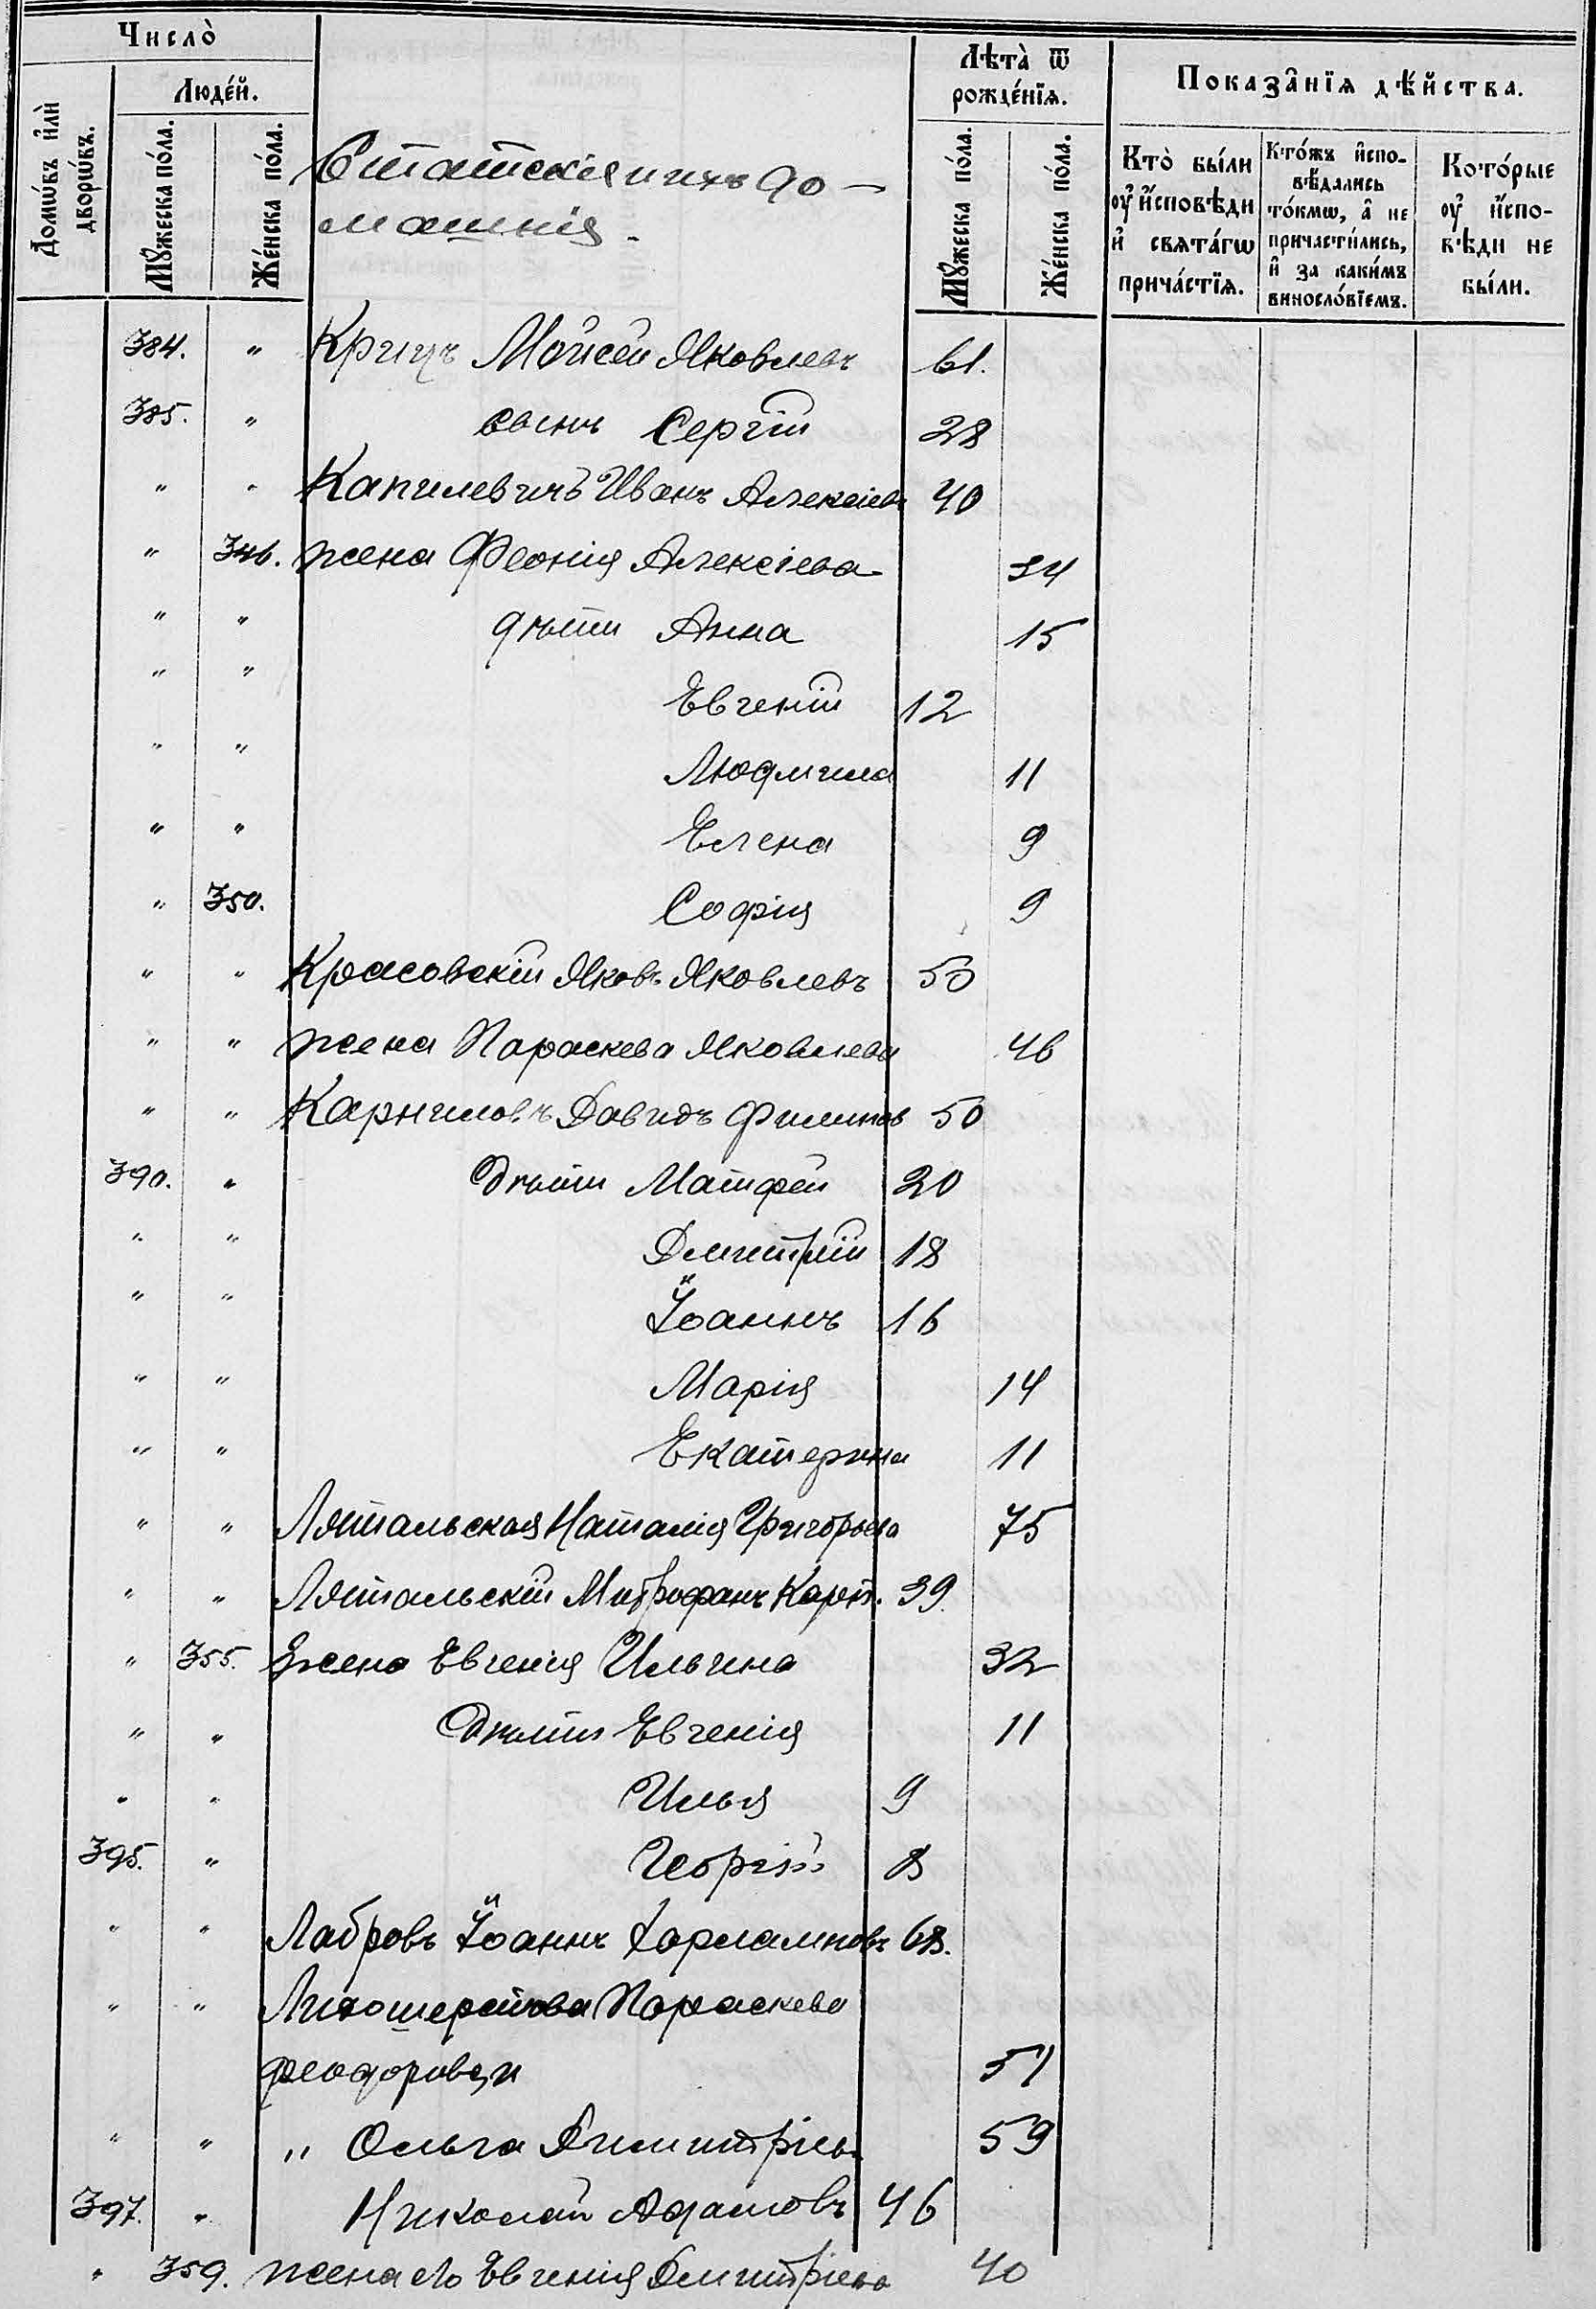 Число̀
Домѡ́въ и҆лѝ дворѡ́въ.
Люде́й.
Мꙋ́жеска по́ла.
Же́нска по́ла.
Статскія и ихъ до-
машнія.
Лѣта̀ ѿ рожде́нїѧ.
Мꙋ́жеска по́ла.
Же́нска по́ла.
Показа̑нїѧ дѣ́йства.
Кто̀ бы́ли ᲂу҆ и҆сповѣди и҆ свѧта́гѡ прича́стїѧ.
Кто́жъ и҆спо-вѣдались то́кмѡ, а҆ не причасти́лись, и҆ за каки́мъ виносло́вїемъ.
Кото́рые ᲂу҆ и҆спо-вѣди не бы́ли.
384. " Крицъ Моисей Яковлевъ 61.
385. " сынъ Сергій 28
" " Капилевичъ Иванъ Алексіевъ 40
" 346. жена Феонія Алексіева 34
" " дѣти Анна 15
" " Евгеній 12
" " Людмила 11
" " Елена 9
" 350. Софія 9
" " Красовскій Яковъ Яковлевъ 50
" " жена Параскева Яковлева 46
" " Карниловъ Давидъ Филипов 50
390. " Дѣти Матфей 20
" " Дмитрій 18
" " Іоаннъ 16
" " Марія 14
" " Екатерина 11
" " Лятальская Наталія Григорьева 75
" " Лятальскій Митрофанъ Карп. 39.
" 355. Жена Евгенія Ильина 32
" " Дѣти Евгенія 11
" " Илья 9
395. " Георгій 8
" " Лавровъ Іоаннъ Харламповъ 68.
" " Лихошерстова Параскева
Феодоровн 51
" " " Ольга Димитріев. 59
397. " Николай Адамовъ 46
" 359. жена его Евгенія Дмитріева 40